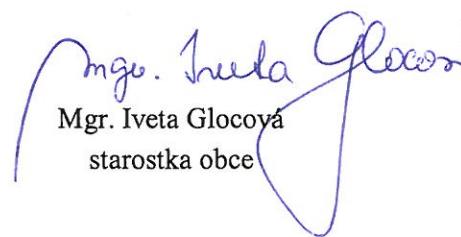 Mgr. Iveta Glocová
Mgr. Iveta Glocová
starostka obce